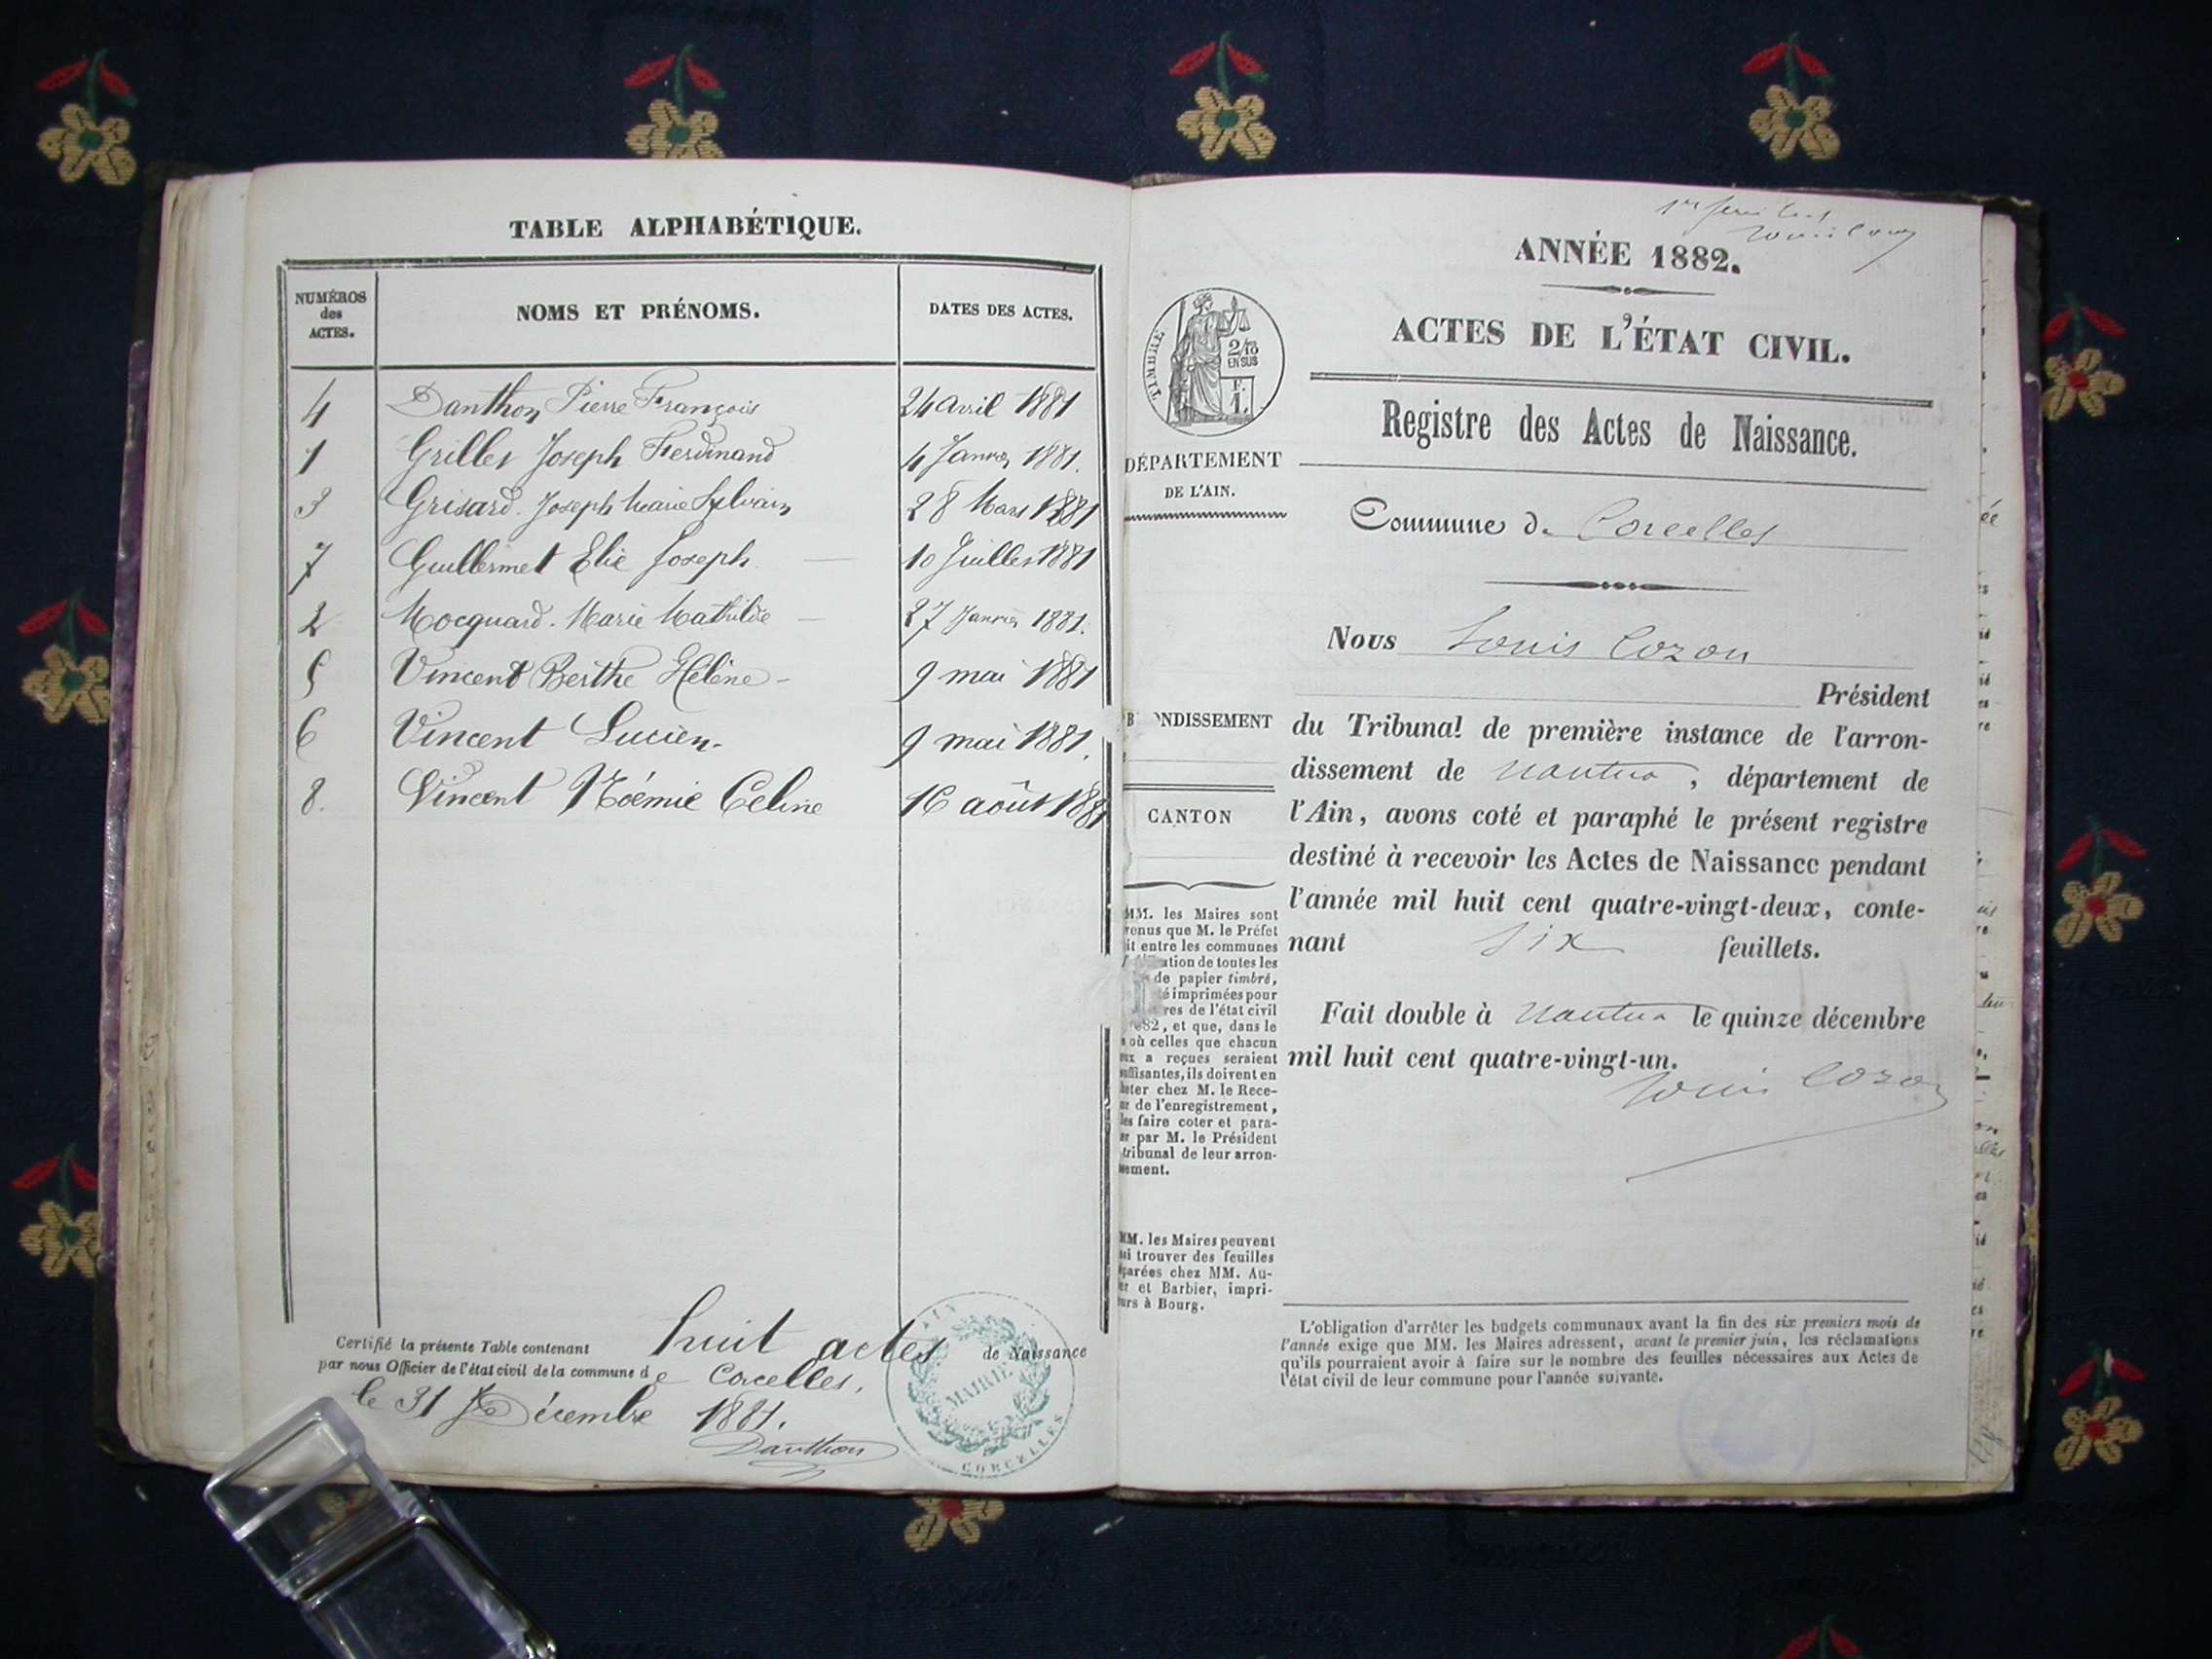 TABLE ALPHABÉTIQUE.
NUMÉROS
des
ACTES.
NOMS ET PRÉNOMS.
DATES DES ACTES.
4 Danthon Pierre François 24 avril 1881
1 Grillet Joseph Ferdinand 4 Janvier 1881.
3 Grisard. Joseph Marie Sylvain 28 Mars 1881
7 Guillermet Elie Joseph. 10 Juillet 1881
2 Mocquard. Marie Mathilde 27 Janvier 1881.
5 Vincent Berthe Hélène - 9 mai 1881
6 Vincent Lucien. 9 mai 1881.
8. Vincent Noémie Celine 16 août 1881
Certifié la présente Table contenant huit actes de Naissance
par nous Officier de l'état civil de la commune de Corcelles,
le 31 Décembre 1881.
Danthon
AIN
MAIRIE
CORCELLES
1er feuillet
Louis Cozon
ANNÉE 1882.
ACTES DE L'ÉTAT CIVIL.
Registre des Actes de Naissance.
TIMBRE
2/10
EN SUS
F.
1.
DÉPARTEMENT
DE L'AIN.
Commune de Corcelles
Nous Louis Cozon
Président
du Tribunal de première instance de l'arron-
dissement de Nantua, département de
l'Ain, avons coté et paraphé le présent registre
destiné à recevoir les Actes de Naissance pendant
l'année mil huit cent quatre-vingt-deux, conte-
nant six feuillets.
Fait double à Nantua le quinze décembre
mil huit cent quatre-vingt-un.
Louis Cozon
NDISSEMENT
CANTON
MM. les Maires sont
venus que M. le Préfet
it entre les communes
ution de toutes les
de papier timbré,
té imprimées pour
res de l'état civil
882, et que, dans le
s où celles que chacun
eux a reçues seraient
suffisantes, ils doivent en
heter chez M. le Rece-
ur de l'enregistrement,
les faire coter et para-
er par M. le Président
tribunal de leur arron-
sement.
MM. les Maires peuvent
si trouver des feuilles
parées chez MM. Au-
er et Barbier, impri-
urs à Bourg.
L'obligation d'arrêter les budgets communaux avant la fin des six premiers mois de
l'année exige que MM. les Maires adressent, avant le premier juin, les réclamations
qu'ils pourraient avoir à faire sur le nombre des feuilles nécessaires aux Actes de
l'état civil de leur commune pour l'année suivante.